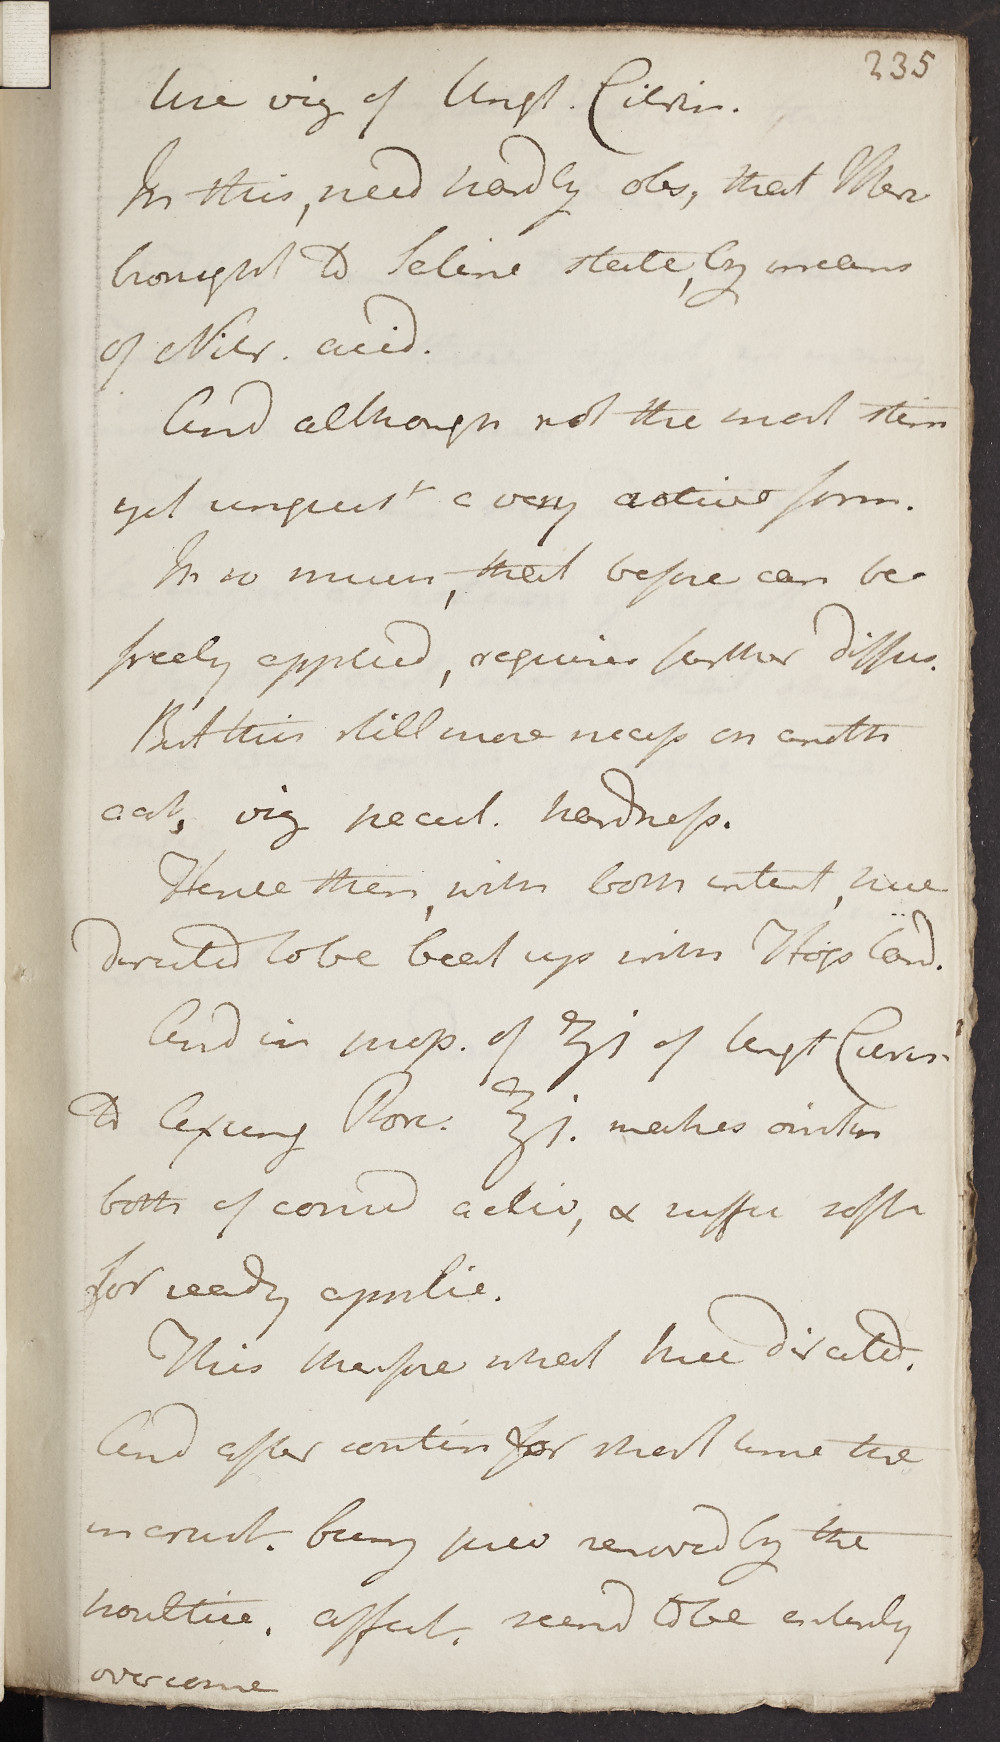 235
here viz of Ungt. Citrin.
In this, need hardly obs, that Mer
brought to Saline state, by means
of Nitr. acid.
And although not the most stim
yet unquest a very active form.
In so much, that before can be
freely applied, requires further diffus.
But this still more necess on anoth
act, viz hardness.
Hence then, with both intent, here
directed to be beat up with Hogs Lard.
And in prop. of ʒj of Ungt Citrin
to Axung Porc. ℥j. makes ointm
both of consid activ, & suffic soft
for ready applic.
This therefore what here directed.
And after contin for short time the
incrust. being previo removed by the
poultice. affect. seemd to be entirely
overcome